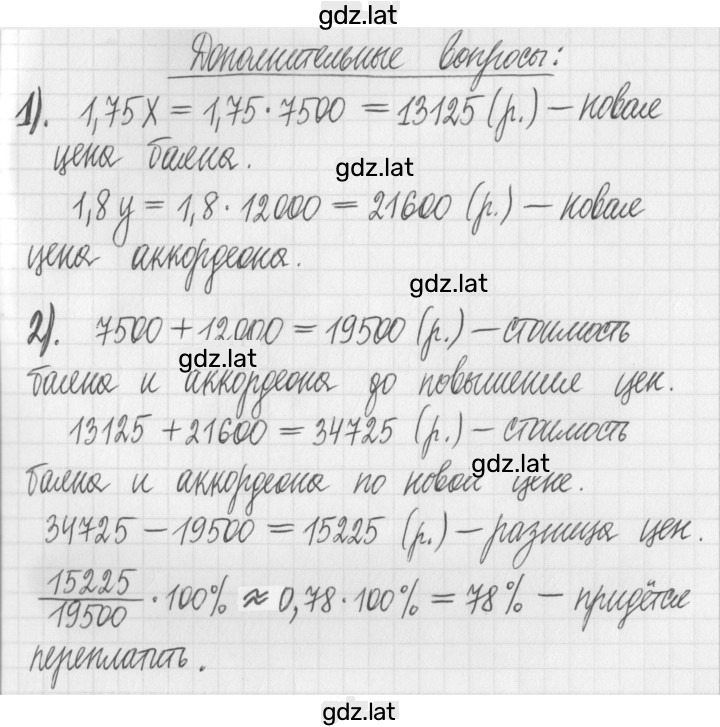 gdz.lat
Дополнительные вопросы:
1). 1,75x = 1,75·7500 = 13125 (р.) — новая
gdz.lat
цена баяна.
1,8y = 1,8·12000 = 21600 (р.) — новая
цена аккордеона.
gdz.lat
2). 7500 + 12000 = 19500 (р.) — стоимость
gdz.lat
баяна и аккордеона до повышения цен.
13125 + 21600 = 34725 (р.) — стоимость
gdz.lat
баяна и аккордеона по новой цене.
34725 – 19500 = 15225 (р.) — разница цен.
15225/19500 · 100% ≈ 0,78·100% = 78% — придётся
переплатить.
gdz.lat